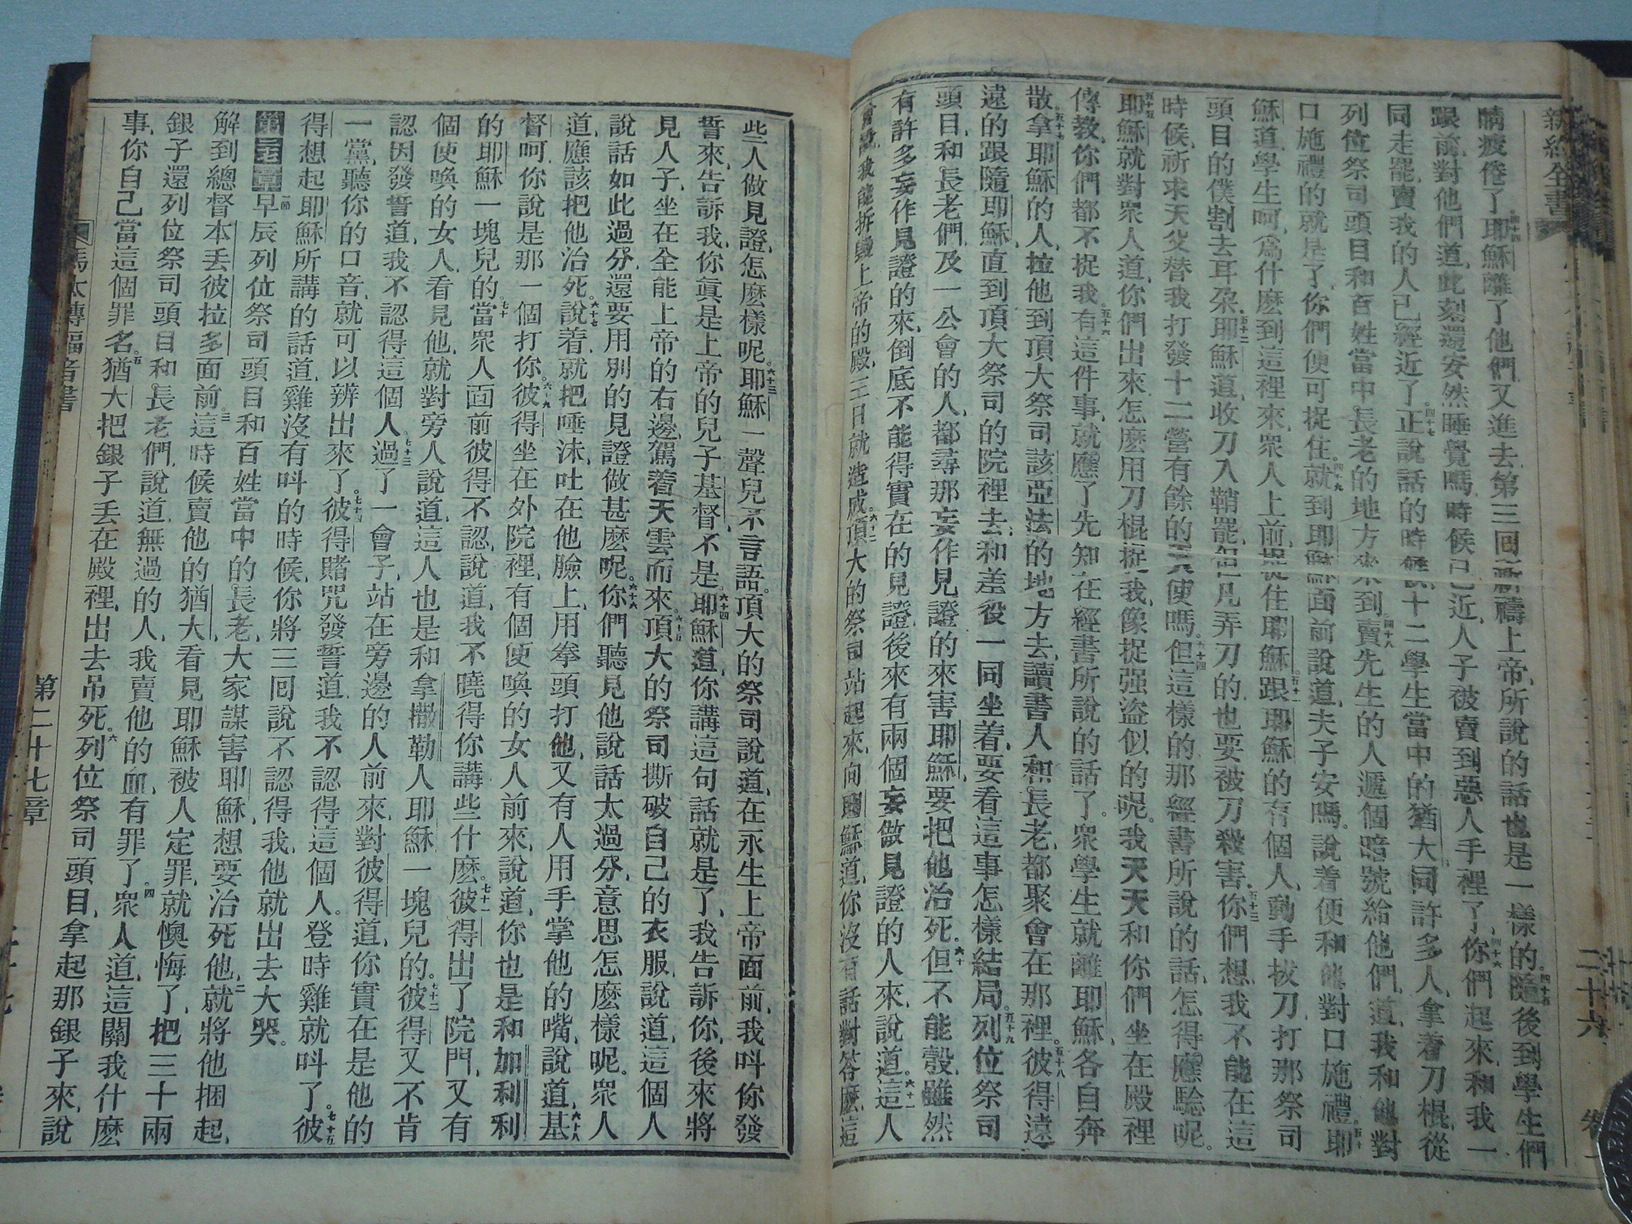 新約全書
睛疲倦了耶穌離了他們又進去第三回祈禱上帝所說的話也是一樣的隨後到學生們
跟前對他們道此刻還安然睡覺嗎時候已近人子彼賣到惡人手裡了你們起來和我一
同走罷賣我的人已經近了正說話的時候十二學生當中的猶大同許多人拿着刀棍從
列位祭司頭目和百姓當中長老的地方來到賣先生的人遞個暗號給他們道我和誰對
口施禮的就是了你們便可捉住就到耶穌面前說道夫子安嗎說着便和他對口施禮耶
穌道學生呵爲什麽到這裡來眾人上前捉住耶穌跟耶穌的有個人動手拔刀打那祭司
頭目的僕割去耳朶耶穌道收刀入鞘罷但凡弄刀的也要被刀殺害你們想我不能在這
時候祈求天父替我打發十二營有餘的天使嗎但這樣的那經書所說的話怎得應驗呢
耶穌就對眾人道你們出來怎麽用刀棍捉我像捉强盜似的呢我天天和你們坐在殿裡
傳教你們都不捉我有這件事就應了先知在經書所說的話了眾學生就離耶穌各自奔
散拿耶穌的人拉他到頂大祭司該亞法的地方去讀書人和長老都聚會在那裡彼得遠
遠的跟隨耶穌直到頂大祭司的院裡去和差役一同坐着要看這事怎樣結局列位祭司
頭目和長老們及一公會的人都尋那妄作見證的來害耶穌要把他治死但不能彀雖然
有許多妄作見證的來倒底不能得實在的見證後來有兩個妄做見證的人來說道這人
曾說我能拆毀上帝的殿三日就造成頂大的祭司站起來向耶穌道你沒有話對答麽這
些人做見證怎麽樣呢耶穌一聲兒不言語頂大的祭司說道在永生上帝面前我呌你發
誓來告訴我你眞是上帝的兒子基督不是耶穌道你講這句話就是了我告訴你後來將
見人子坐在全能上帝的右邊駕着天雲而來頂大的祭司撕破自己的衣服說道這個人
說話如此過分還要用別的見證做甚麽呢你們聽見他說話太過分意思怎麽樣呢眾人
道應該把他治死說着就把唾沫吐在他臉上用拳頭打他又有人用手掌他的嘴說道基
督呵你說是那一個打你彼得坐在外院裡有個使喚的女人前來說道你也是和加利利
的耶穌一塊兒的當眾人面前彼得不認說道我不曉得你講些什麽彼得出了院門又有
個使喚的女人看見他就對旁人說道這人也是和拿撒勒人耶穌一塊兒的彼得又不肯
認因發誓道我不認得這個人過了一會子站在旁邊的人前來對彼得道你實在是他的
一黨聽你的口音就可以辨出來了彼得賭咒發誓道我不認得這個人登時雞就呌了彼
得想起耶穌所講的話道雞沒有呌的時候你將三囘說不認得我他就出去大哭
早辰列位祭司頭目和百姓當中的長老大家謀害耶穌想要治死他就將他捆起
解到總督本丟彼拉多面前這時候賣他的猶大看見耶穌被人定罪就懊悔了把三十兩
銀子還列位祭司頭目和長老們說道無過的人我賣他的血有罪了眾人道這關我什麽
事你自己當這個罪名猶大把銀子丟在殿裡出去吊死列位祭司頭目拿起那銀子來說
馬太傳福音書 第二十七章